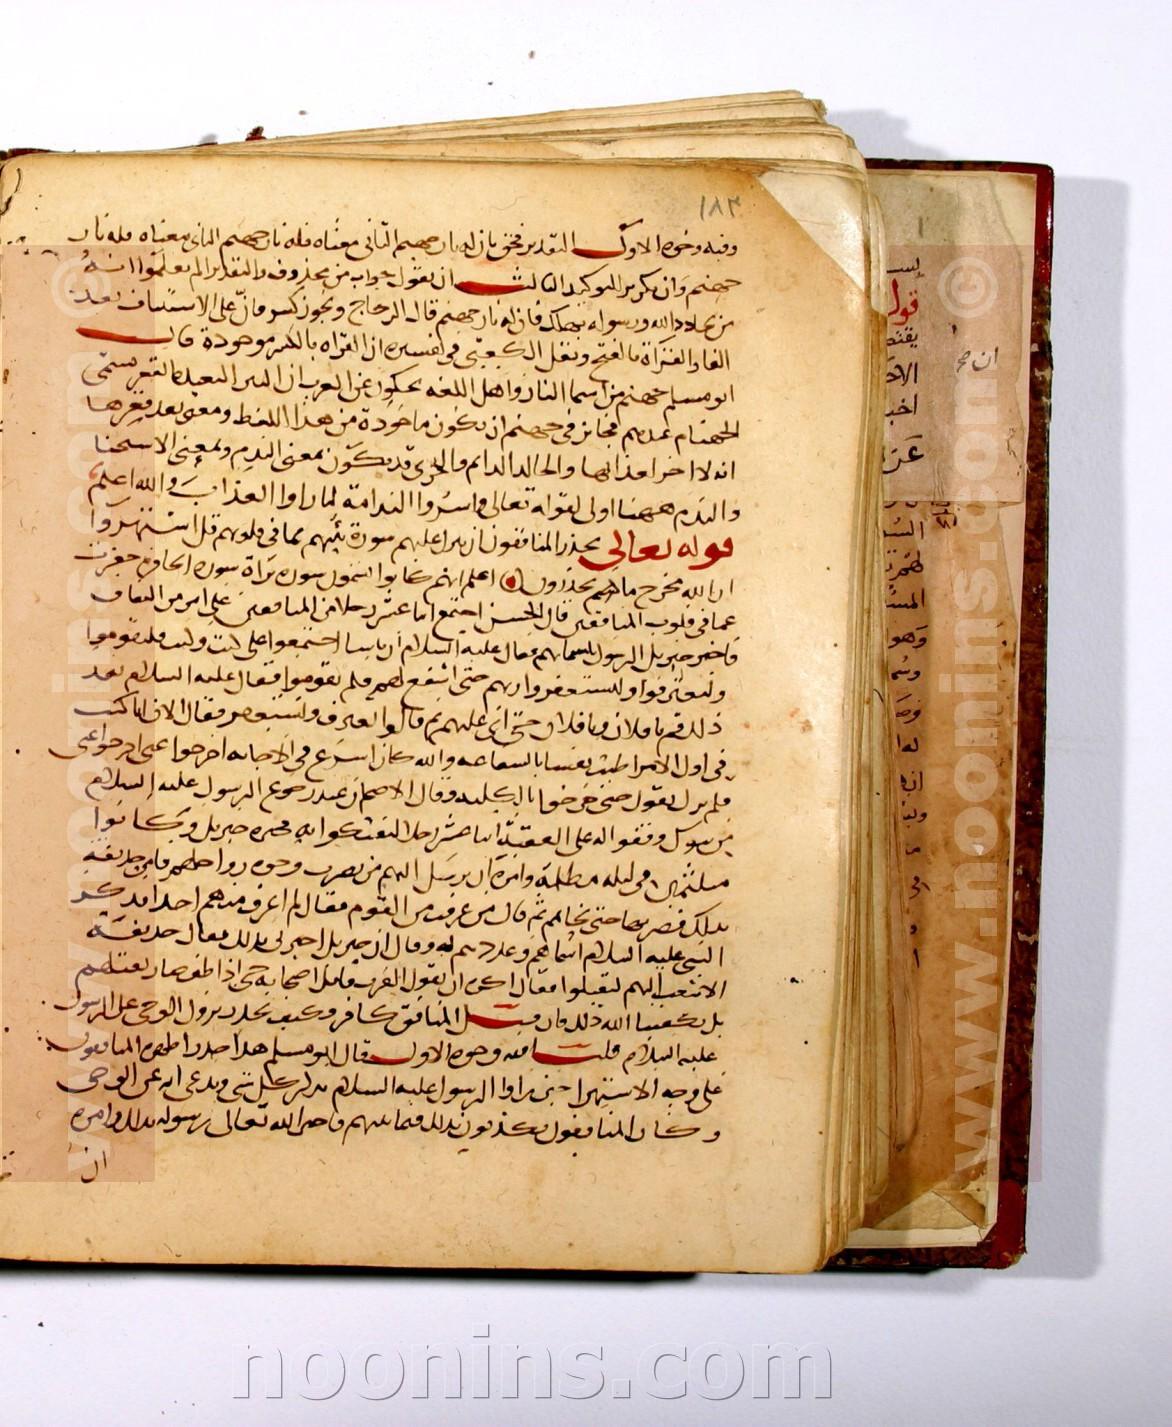 ١٨٣
وفيه وجوه الاول التقدير فحق بان له نار جهنم الثانى معناه فله نار جهنم الثانى معناه فله نار
جهنم وان تكرير للتوكيد الثالث ان يقول جواب من محذوف والتقدير الم يعلموا انه
من يحادد الله ورسوله يهلك فان له نار جهنم قال الزجاج ويجوز كسر فان على الاستئناف بعد
الفا والقراة بالفتح ونقل الكعبى فى تفسيره ان القراه بالكسر موجودة قال
ابو مسلم جهنم من اسما النار واهل اللغه يحكون عن العرب ان البير البعيدة القعر يسمى
الجهنام عندهم فجائز فى جهنم ان يكون ماخوذة من هذا اللفظ ومعنى بعد قعرها
انه لا اخر لعذابها والخالد الدائم والخزى قد يكون بمعنى الندم وبمعنى الاستحيا
والندم ههنا اولى لقوله تعالى واسروا الندامة لما راوا العذاب والله اعلم
قوله تعالى يحذر المنافقون ان ينزل عليهم سورة تنبئهم بما فى قلوبهم قل استهزوا
ان الله مخرج ما تحذرون اعلم انهم كانوا يسمون سوره براة سوره الحافره حفرت
عما فى قلوب المنافقين قال الحسن اجتمع اثنا عشر رجلا من المنافقين على امر من النفاق
فاخبر جبريل الرسول باسمائهم فقال عليه السلام ان ناسا اجتمعوا على كيت وكيت فليقوموا
وليعترفوا وليستغفروا ربهم حتى اشفع لهم فلم يقوموا فقال عليه السلام بعد
ذلك قم يا فلان ويا فلان حتى اتى عليهم ثم قالوا نعترف ونستغفر فقال الان انا كنت
فى اول الامر اطيب نفسا بالشفاعه والله كان اسرع فى الاجابه اخرجوا عنى اخرجوا عنى
فلم يزل يقول حتى خرجوا بالكليه وقال الاصم ان عند رجوع الرسول عليه السلام
من تبوك وقفوا له على العقبة اثنا عشر رجلا ليفتكوا به فخبره جبريل وكانوا
متلثمين فى ليله مظلمة وامره ان يرسل اليهم من يضرب وجوه رواحلهم فامر حذيفه
بذلك فضربها حتى نحاهم ثم قال من عرفت من القوم فقال لم اعرف منهم احدا فذكر
النبى عليه السلام اسماهم وعدهم له وقال ان جبريل اخبرنى بذلك فقال حذيفة
الا تبعث اليهم ليقتلوا فقال اكره ان يقول العرب قاتل اصحابه حتى اذا ظفر صار يقتلهم
بل يكفينا الله ذلك فان قيل المنافق كافر وكيف يحذر نزول الوحى على الرسول
عليه السلام قلنا فيه وجوه الاول قال ابو مسلم هذا حذر اظهره المنافقون
على وجه الاستهزا حين راوا الرسول عليه السلام يذكر كل شى ويدعى انه عن الوحى
وكان المنافقون يكذبون بذلك فيما بينهم فاخبر الله تعالى رسوله بذلك وامره
ان
قول
ان صح
www.noonins.com ©
www.noonins.com ©
noonins.com